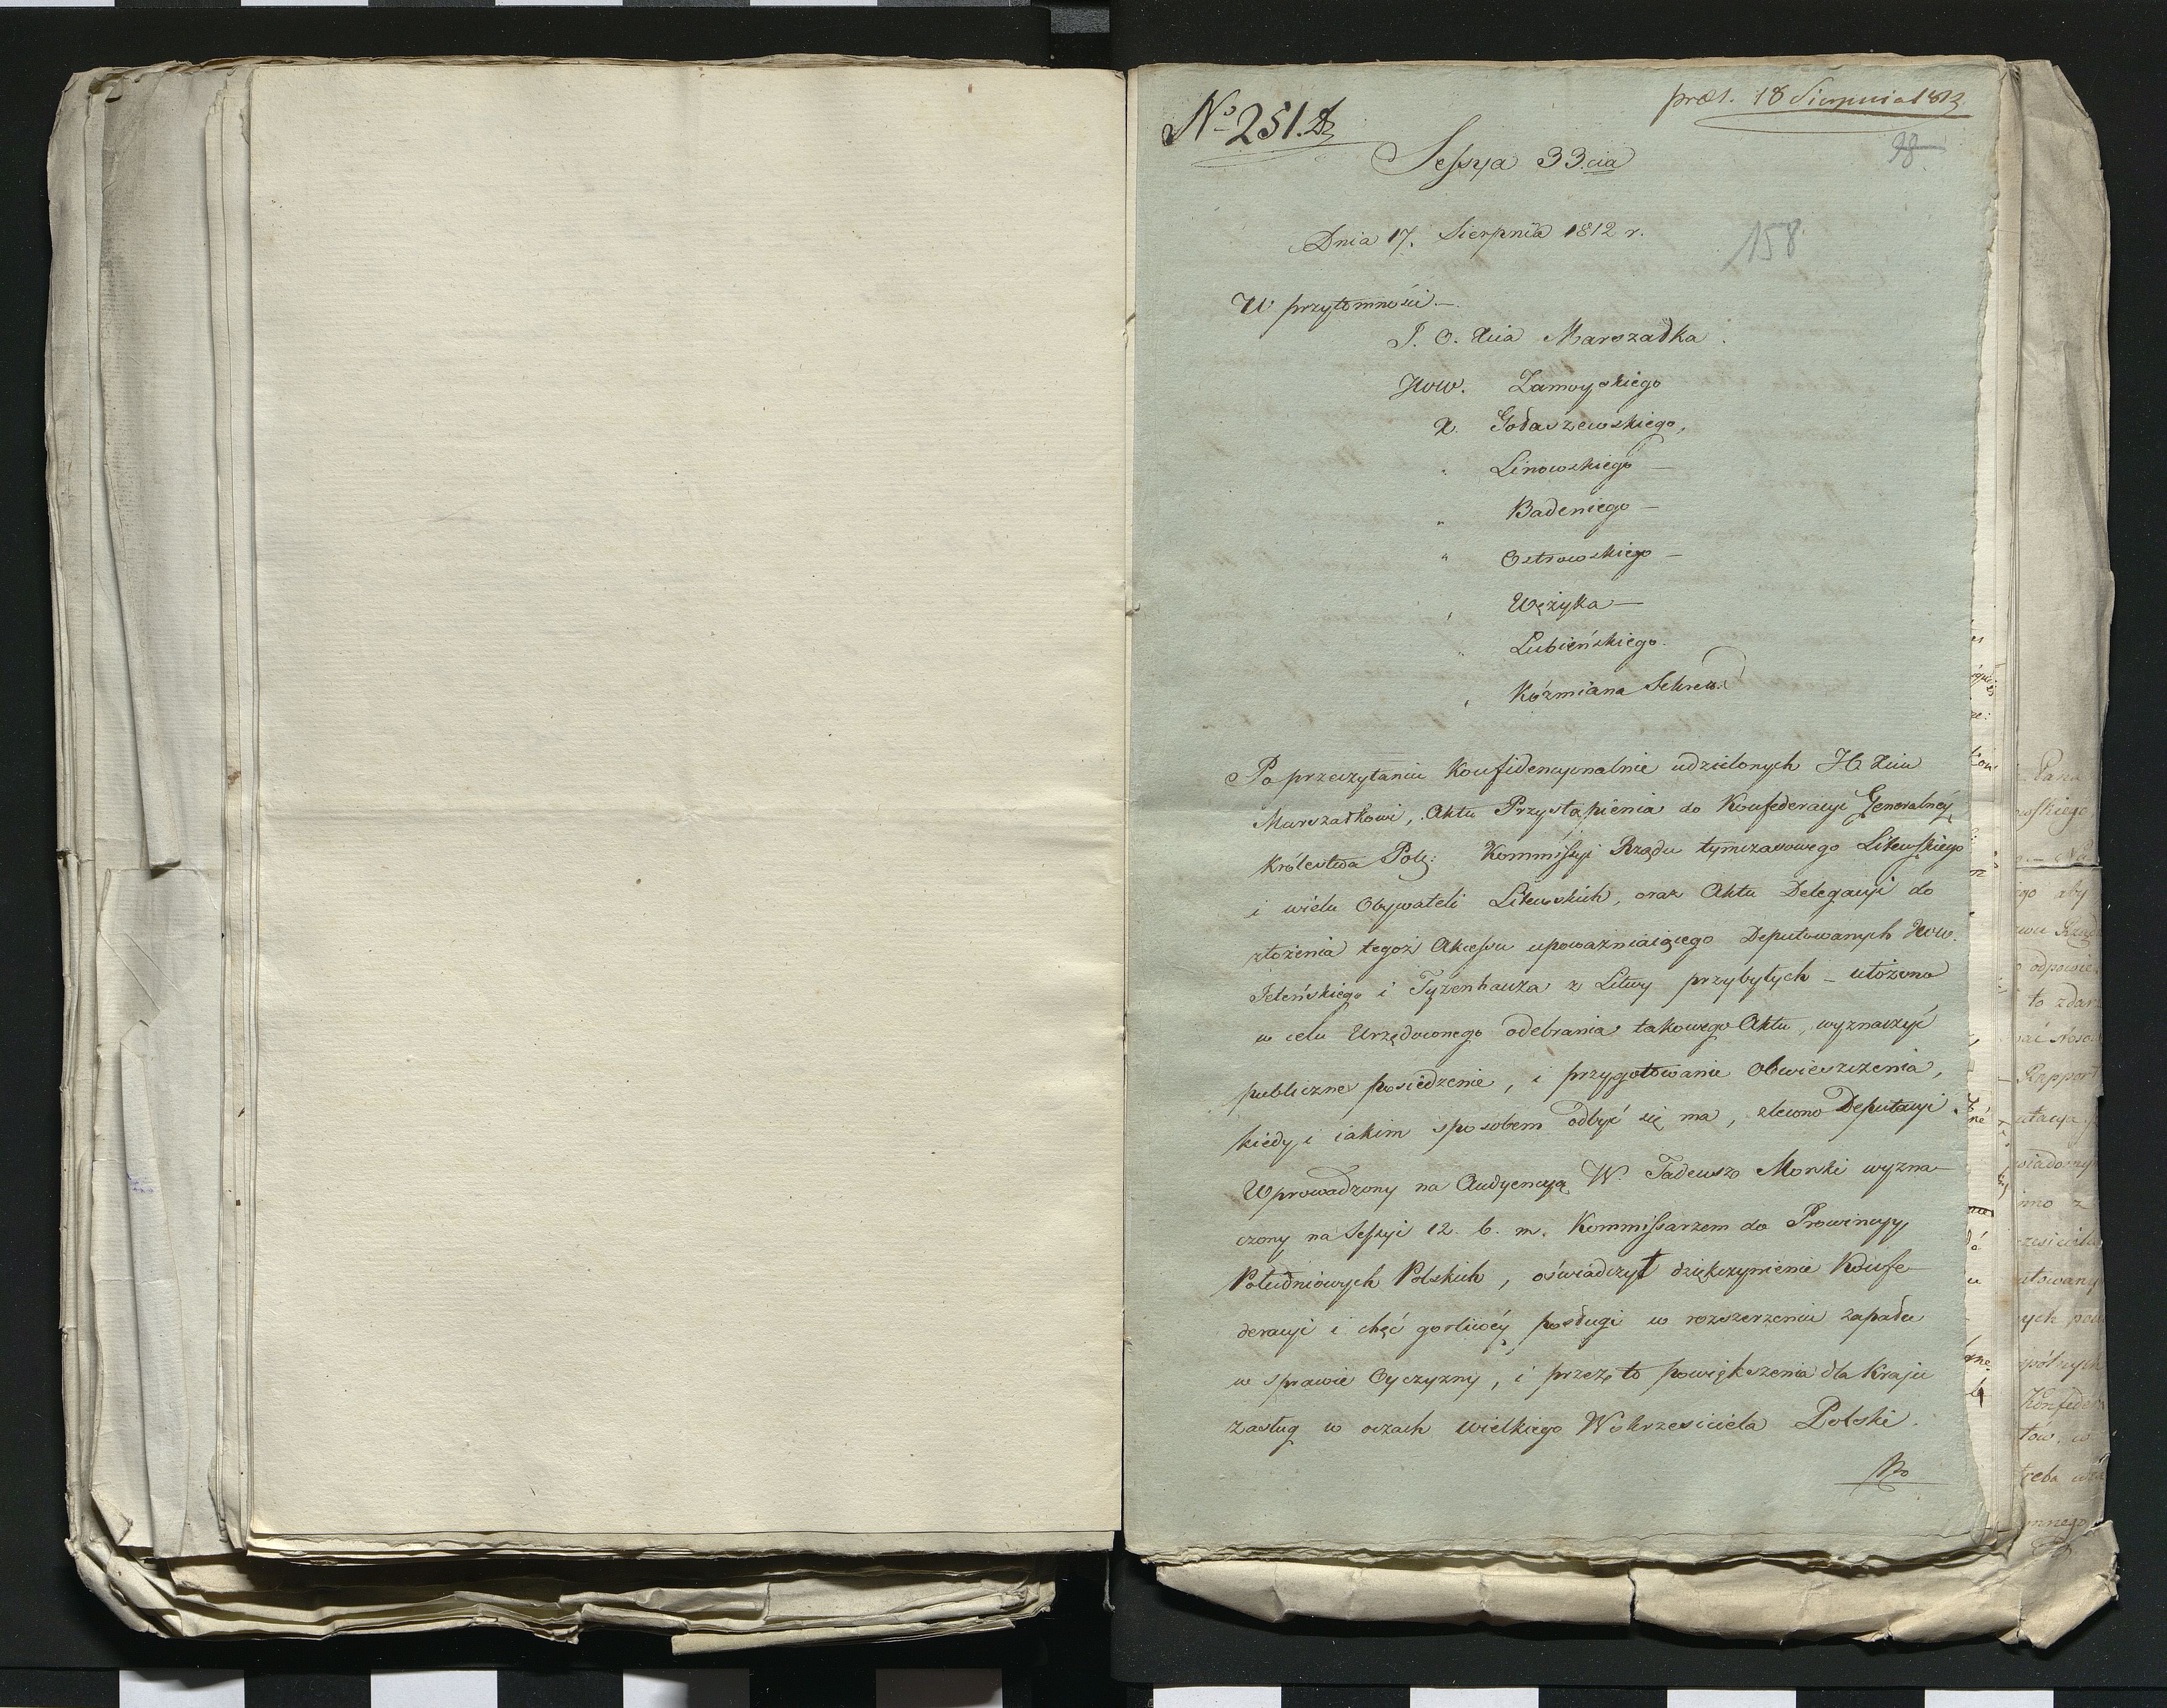 N<sup>o</sup> 251.
præs. 18 Sierpnia 1812
98
Sessya 33.cia
Dnia 17. Sierpnia 1812 r.
158
W przytomności —
J. O. Xcia Marszałka
JWW. Zamoyskiego
X. Gołaszewskiego,
" Linowskiego —
" Badeniego —
" Ostrowskiego —
" Wężyka —
" Lubieńskiego.
" Koźmiana Sekret:
Po przeczytaniu Konfidencyonalnie udzielonych Xciu
Marszałkowi, Aktu Przystąpienia do Konfederacyi Generalnéy
Królestwa Pols: Kommissyi Rządu tymczasowego Litewskiego
i wielu Obywateli Litewskich, oraz Aktu Delegacyi do
złożenia tegoż Akcessu upoważniaiącego Deputowanych JWW.
Jeleńskiego i Tyzenhauza z Litwy przybyłych — ułożono
w celu Urzędowego odebrania takowego Aktu, wyznaczyć
publiczne posiedzenie, i przygotowanie Obwieszczenia,
kiedy i iakim sposobem odbyć się ma, zlecono Deputacyi.
Wprowadzony na Audyencyą W. Tadeusz Morski wyzna-
czony na Sessyi 12. b. m. Kommissarzem do Prowincyy
Południowych Polskich, oświadczył dziękczynienie Konfe-
deracyi i chęć gorliwéy posługi w rozszerzeniu zapału
w sprawie Oyczyzny, i przez to powiększenia dla Kraju
zasług w oczach wielkiego Wskrzesiciela Polski.
Po